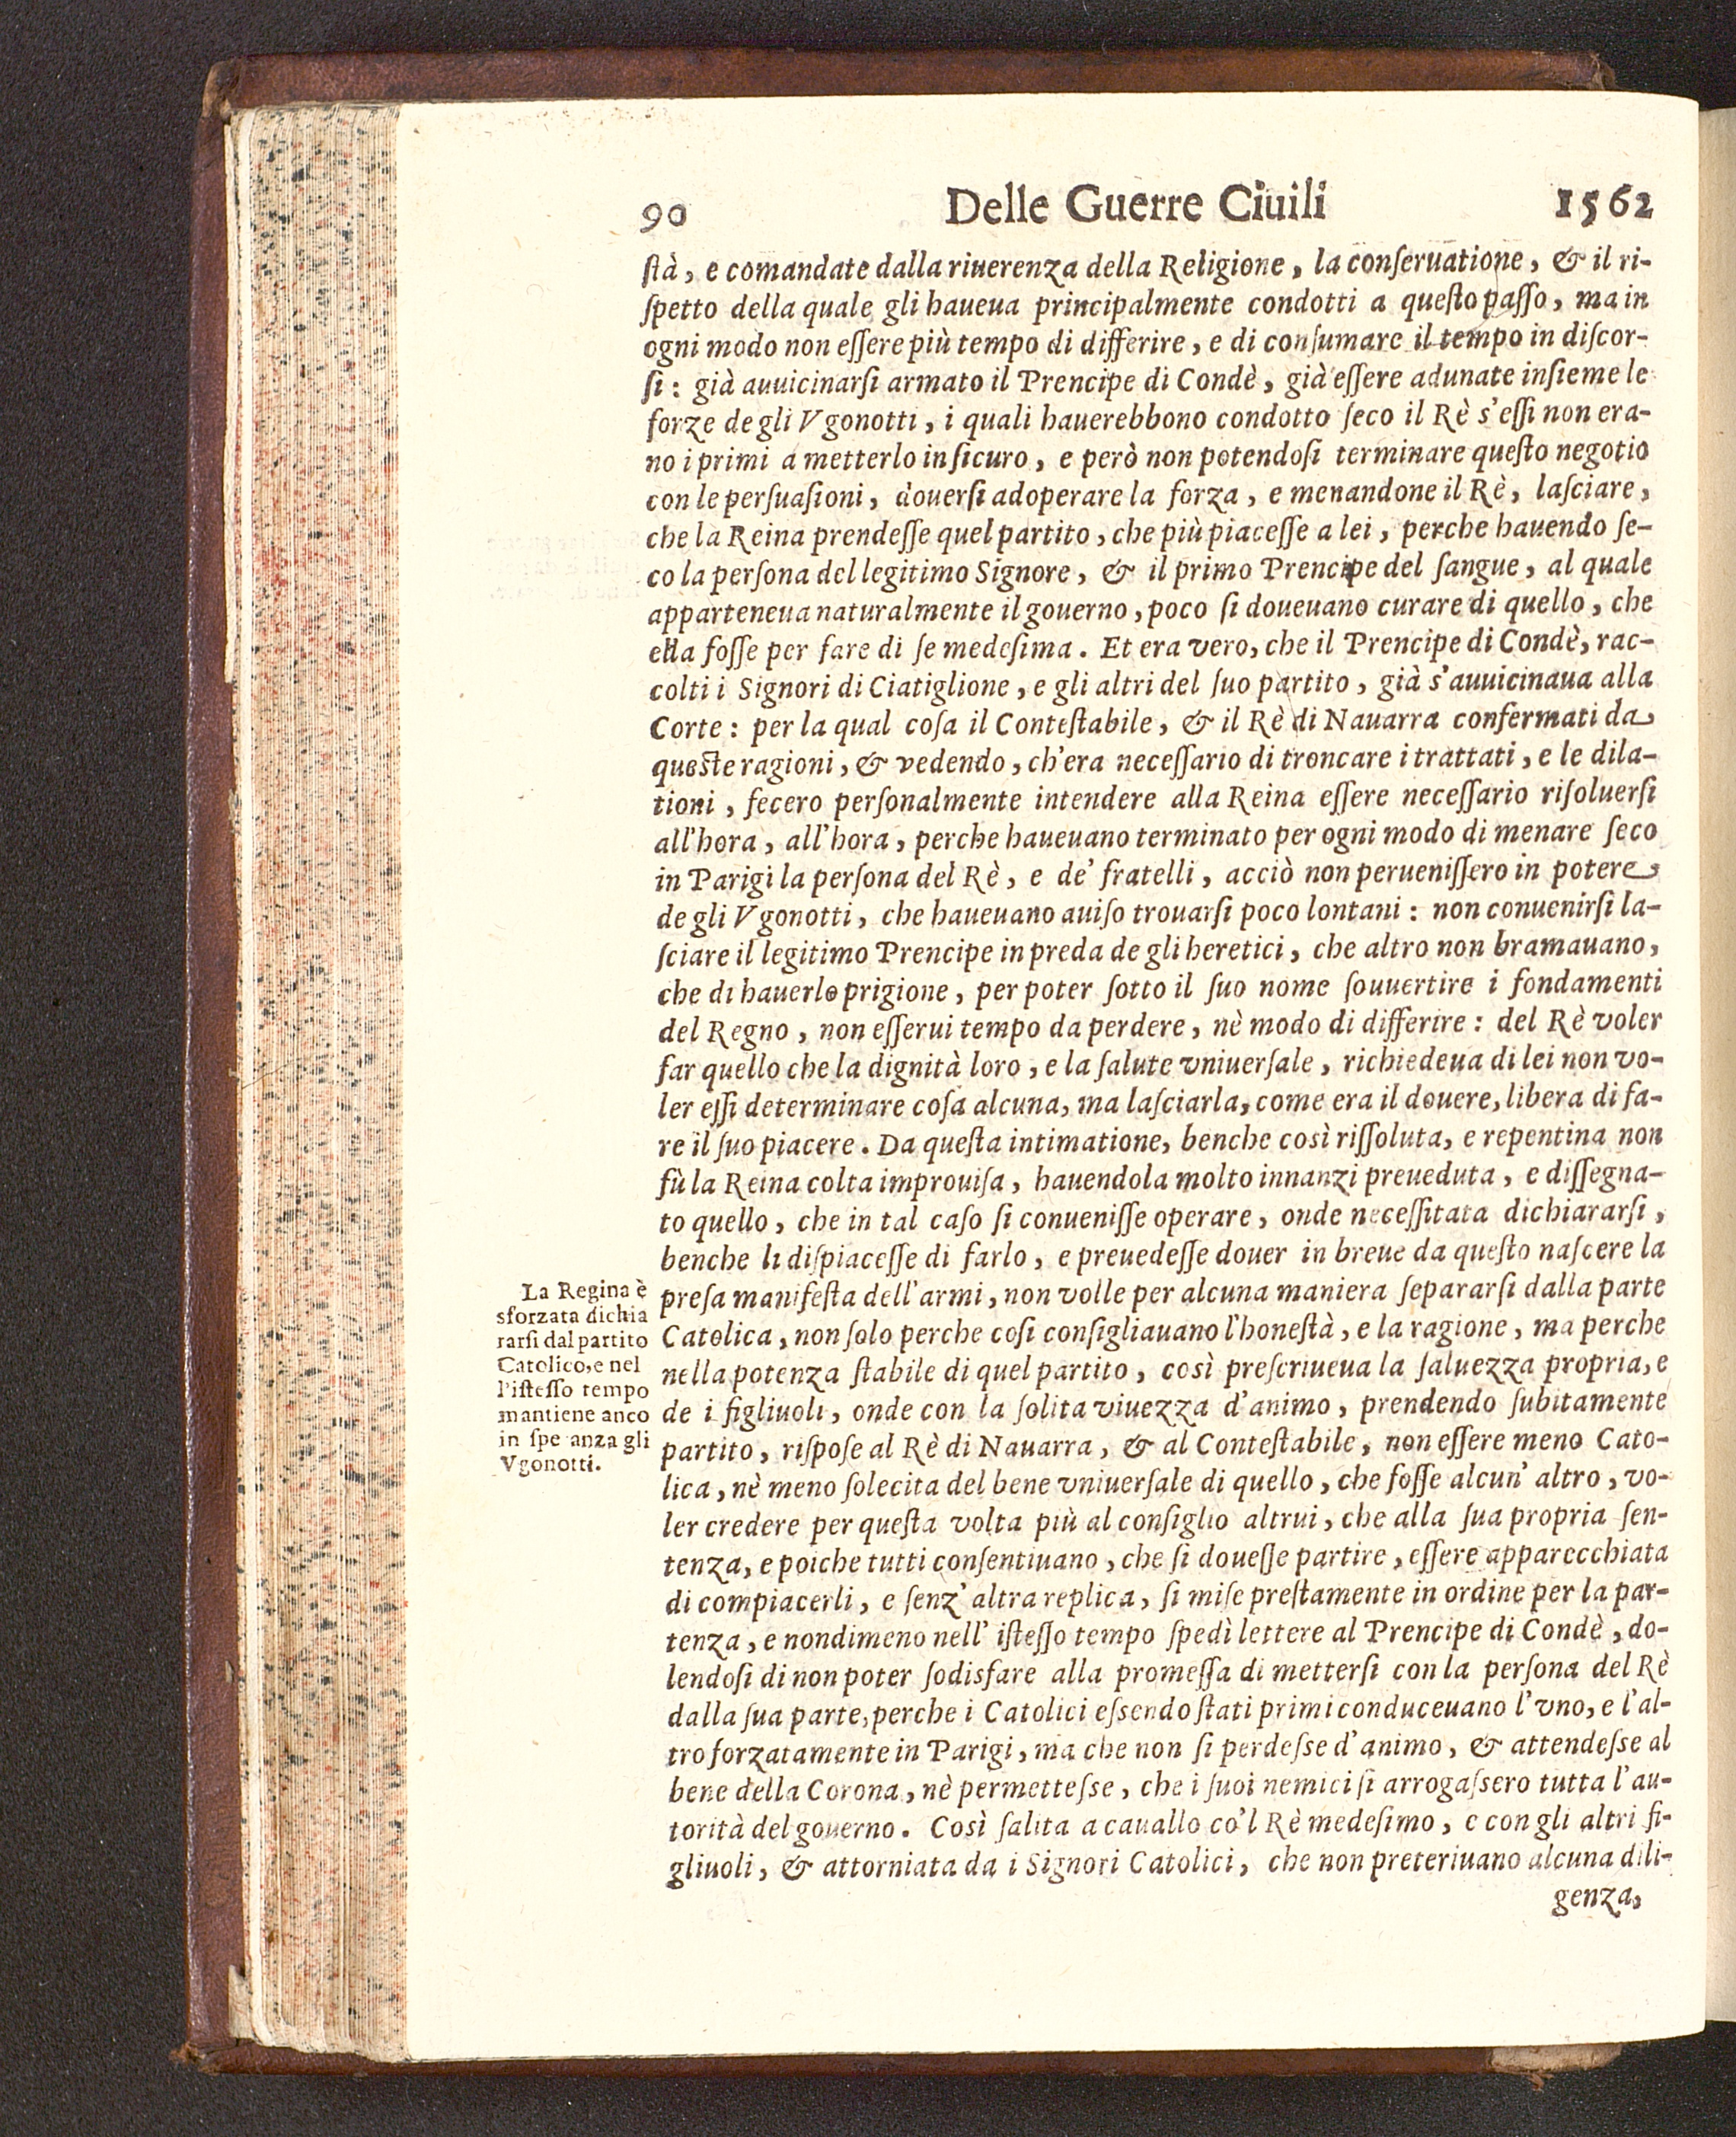 90 Delle Guerre Ciuili 1562
ſtà, e comandate dalla riuerenza della Religione, la conſeruatione, & il ri-
ſpetto della quale gli haueua principalmente condotti a queſto paſſo, ma in
ogni modo non eſſere più tempo di differire, e di conſumare il tempo in diſcor-
ſi: già auuicinarſi armato il Prencipe di Condè, già eſſere adunate inſieme le
forze de gli Vgonotti, i quali hauerebbono condotto ſeco il Rè s'eſſi non era-
no i primi a metterlo in ſicuro, e però non potendoſi terminare queſto negotio
con le perſuaſioni, douerſi adoperare la forza, e menandone il Rè, laſciare,
che la Reina prendeſſe quel partito, che più piaceſſe a lei, perche hauendo ſe-
co la perſona del legitimo Signore, & il primo Prencipe del ſangue, al quale
apparteneua naturalmente il gouerno, poco ſi doueuano curare di quello, che
ella foſſe per fare di ſe medeſima. Et era vero, che il Prencipe di Condè, rac-
colti i Signori di Ciatiglione, e gli altri del ſuo partito, già s'auuicinaua alla
Corte: per la qual coſa il Conteſtabile, & il Rè di Nauarra confermati da
queſte ragioni, & vedendo, ch'era neceſſario di troncare i trattati, e le dila-
tioni, fecero perſonalmente intendere alla Reina eſſere neceſſario riſoluerſi
all'hora, all'hora, perche haueuano terminato per ogni modo di menare ſeco
in Parigi la perſona del Rè, e de' fratelli, acciò non perueniſſero in potere
de gli Vgonotti, che haueuano auiſo trouarſi poco lontani: non conuenirſi la-
ſciare il legitimo Prencipe in preda de gli heretici, che altro non bramauano,
che di hauerlo prigione, per poter ſotto il ſuo nome ſouuertire i fondamenti
del Regno, non eſſerui tempo da perdere, nè modo di differire: del Rè voler
far quello che la dignità loro, e la ſalute vniuerſale, richiedeua di lei non vo-
ler eſſi determinare coſa alcuna, ma laſciarla, come era il douere, libera di fa-
re il ſuo piacere. Da queſta intimatione, benche così riſſoluta, e repentina non
fù la Reina colta improuiſa, hauendola molto innanzi preueduta, e diſſegna-
to quello, che in tal caſo ſi conueniſſe operare, onde neceſſitata dichiararſi,
benche li diſpiaceſſe di farlo, e preuedeſſe douer in breue da queſto naſcere la
preſa manifeſta dell'armi, non volle per alcuna maniera ſepararſi dalla parte
Catolica, non ſolo perche coſi conſigliauano l'honeſtà, e la ragione, ma perche
nella potenza ſtabile di quel partito, così preſcriueua la ſaluezza propria, e
de i figliuoli, onde con la ſolita viuezza d'animo, prendendo ſubitamente
partito, riſpoſe al Rè di Nauarra, & al Conteſtabile, non eſſere meno Cato-
lica, nè meno ſolecita del bene vniuerſale di quello, che foſſe alcun' altro, vo-
ler credere per queſta volta più al conſiglio altrui, che alla ſua propria ſen-
tenza, e poiche tutti conſentiuano, che ſi doueſſe partire, eſſere apparecchiata
di compiacerli, e ſenz' altra replica, ſi miſe preſtamente in ordine per la par-
tenza, e nondimeno nell' iſteſſo tempo ſpedì lettere al Prencipe di Condè, do-
lendoſi di non poter ſodisfare alla promeſſa di metterſi con la perſona del Rè
dalla ſua parte, perche i Catolici eſsendo ſtati primi conduceuano l'vno, e l'al-
tro forzatamente in Parigi, ma che non ſi perdeſse d'animo, & attendeſse al
bene della Corona, nè permetteſse, che i ſuoi nemici ſi arrogaſsero tutta l'au-
torità del gouerno. Così ſalita a cauallo co'l Rè medeſimo, e con gli altri fi-
gliuoli, & attorniata da i Signori Catolici, che non preteriuano alcuna dili-
genza,
La Regina è
sforzata dichia
rarſi dal partito
Catolico, e nel
l'iſteſſo tempo
mantiene anco
in ſpe anza gli
Vgonotti.